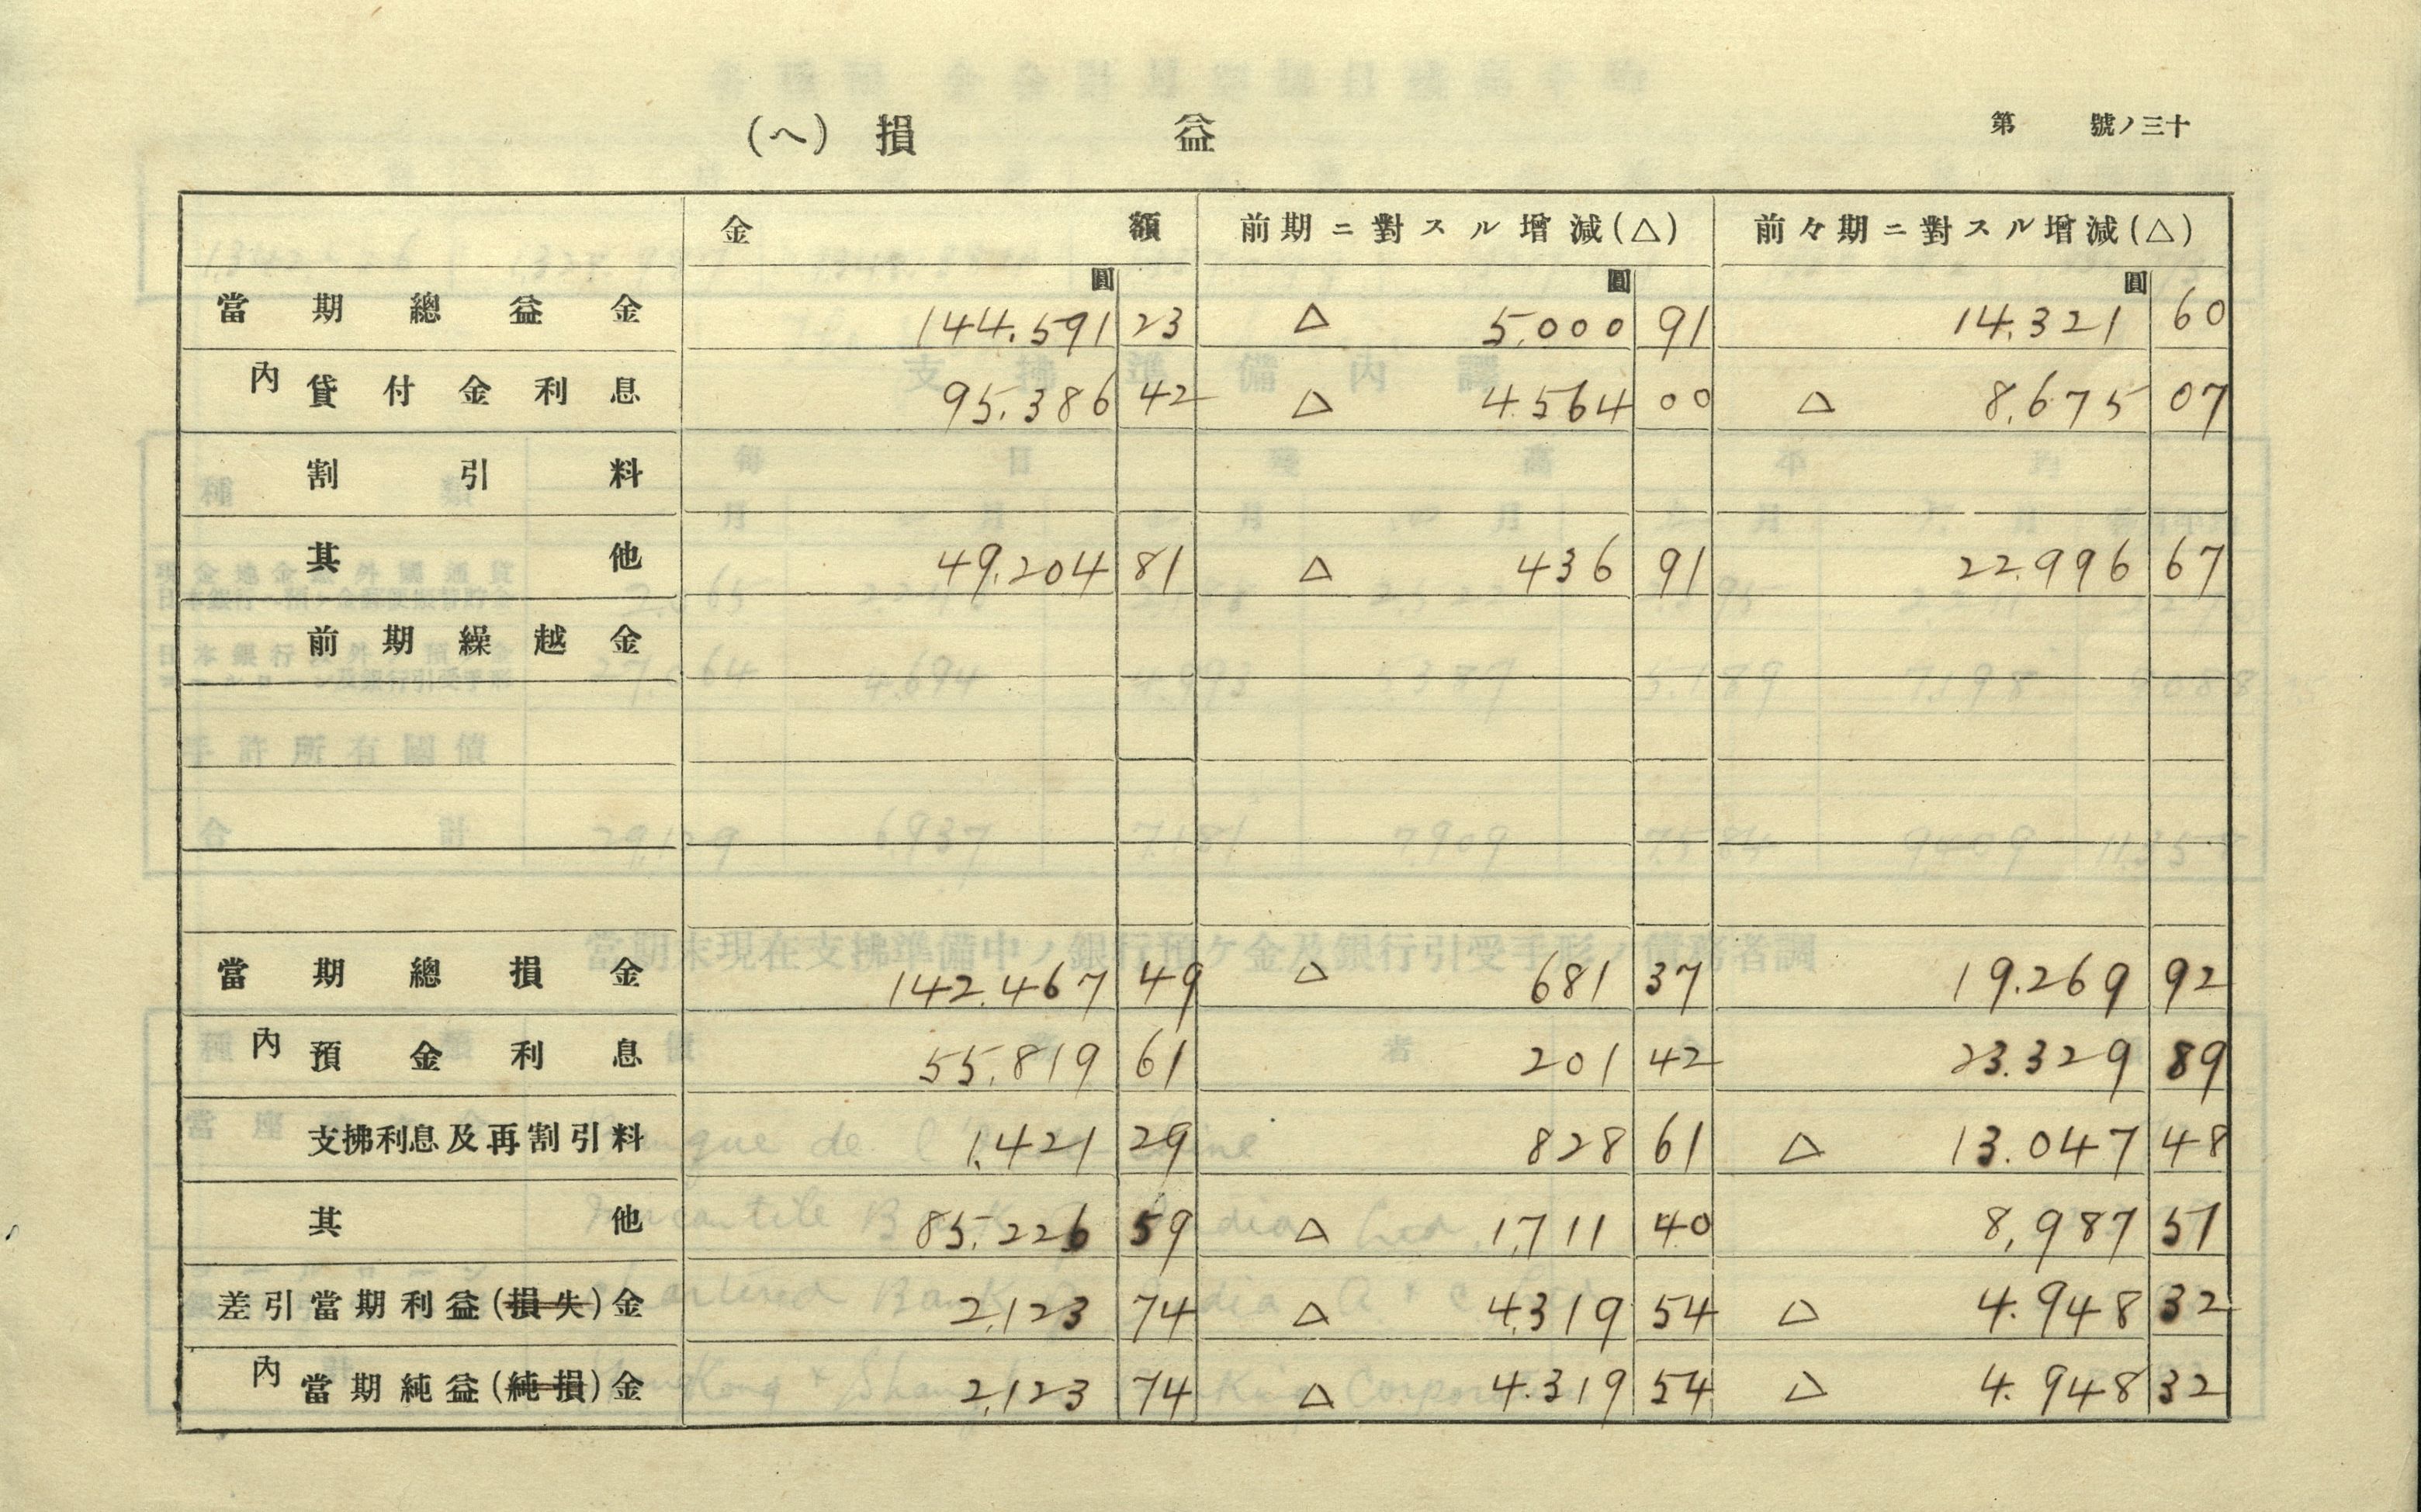 第　　號ノ三十
(ヘ) 損　　益
金　　額　前期ニ對スル增減(△)　前々期ニ對スル增減(△)
圓　圓　圓
當期總益金　144.591 23　△ 5,000 91　14.321 60
內 貸付金利息　95.386 42　△ 4.564 00　△ 8,675 07
割引料
其他　49.204 81　△ 436 91　22.996 67
前期繰越金
當期總損金　142.467 49　△ 681 37　19.269 92
內 預金利息　55.819 61　201 42　23.329 89
支拂利息及再割引料　1.421 29　828 61　△ 13.047 48
其他　85.226 59　△ 1,711 40　8,987 51
差引當期利益(損失)金　2,123 74　△ 4.319 54　△ 4.948 32
內 當期純益(純損)金　2,123 74　△ 4.319 54　△ 4.948 32